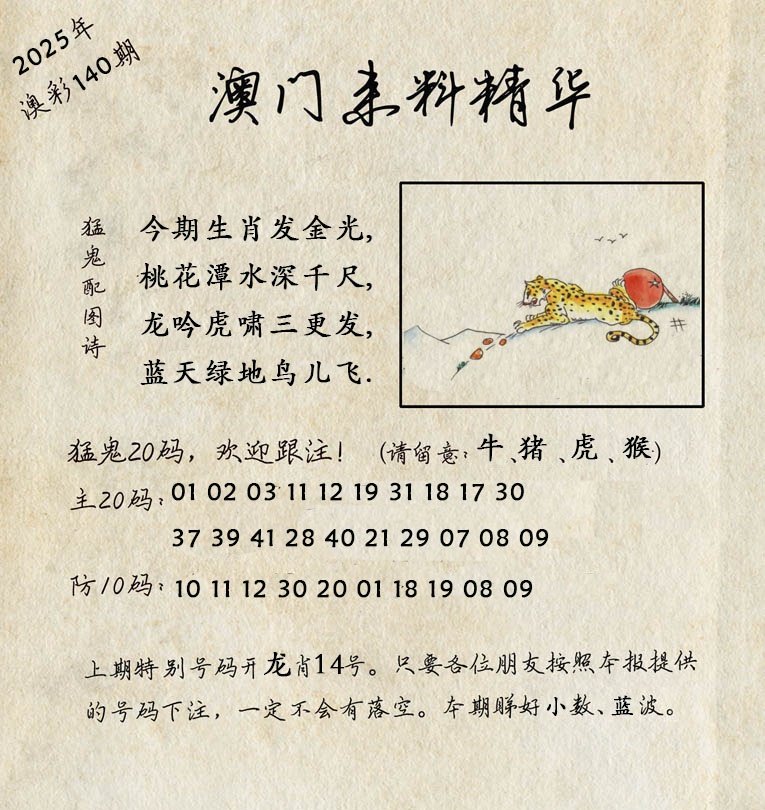 2025年
澳彩140期
澳门来料精华
猛鬼配图诗
今期生肖发金光,
桃花潭水深千尺,
龙吟虎啸三更发,
蓝天绿地鸟儿飞.
猛鬼20码，欢迎跟注！（请留意：牛、猪、虎、猴）
主20码：01 02 03 11 12 19 31 18 17 30
37 39 41 28 40 21 29 07 08 09
防10码：10 11 12 30 20 01 18 19 08 09
上期特别号码开龙肖14号。只要各位朋友按照本报提供
的号码下注，一定不会有落空。本期睇好小数、蓝波。